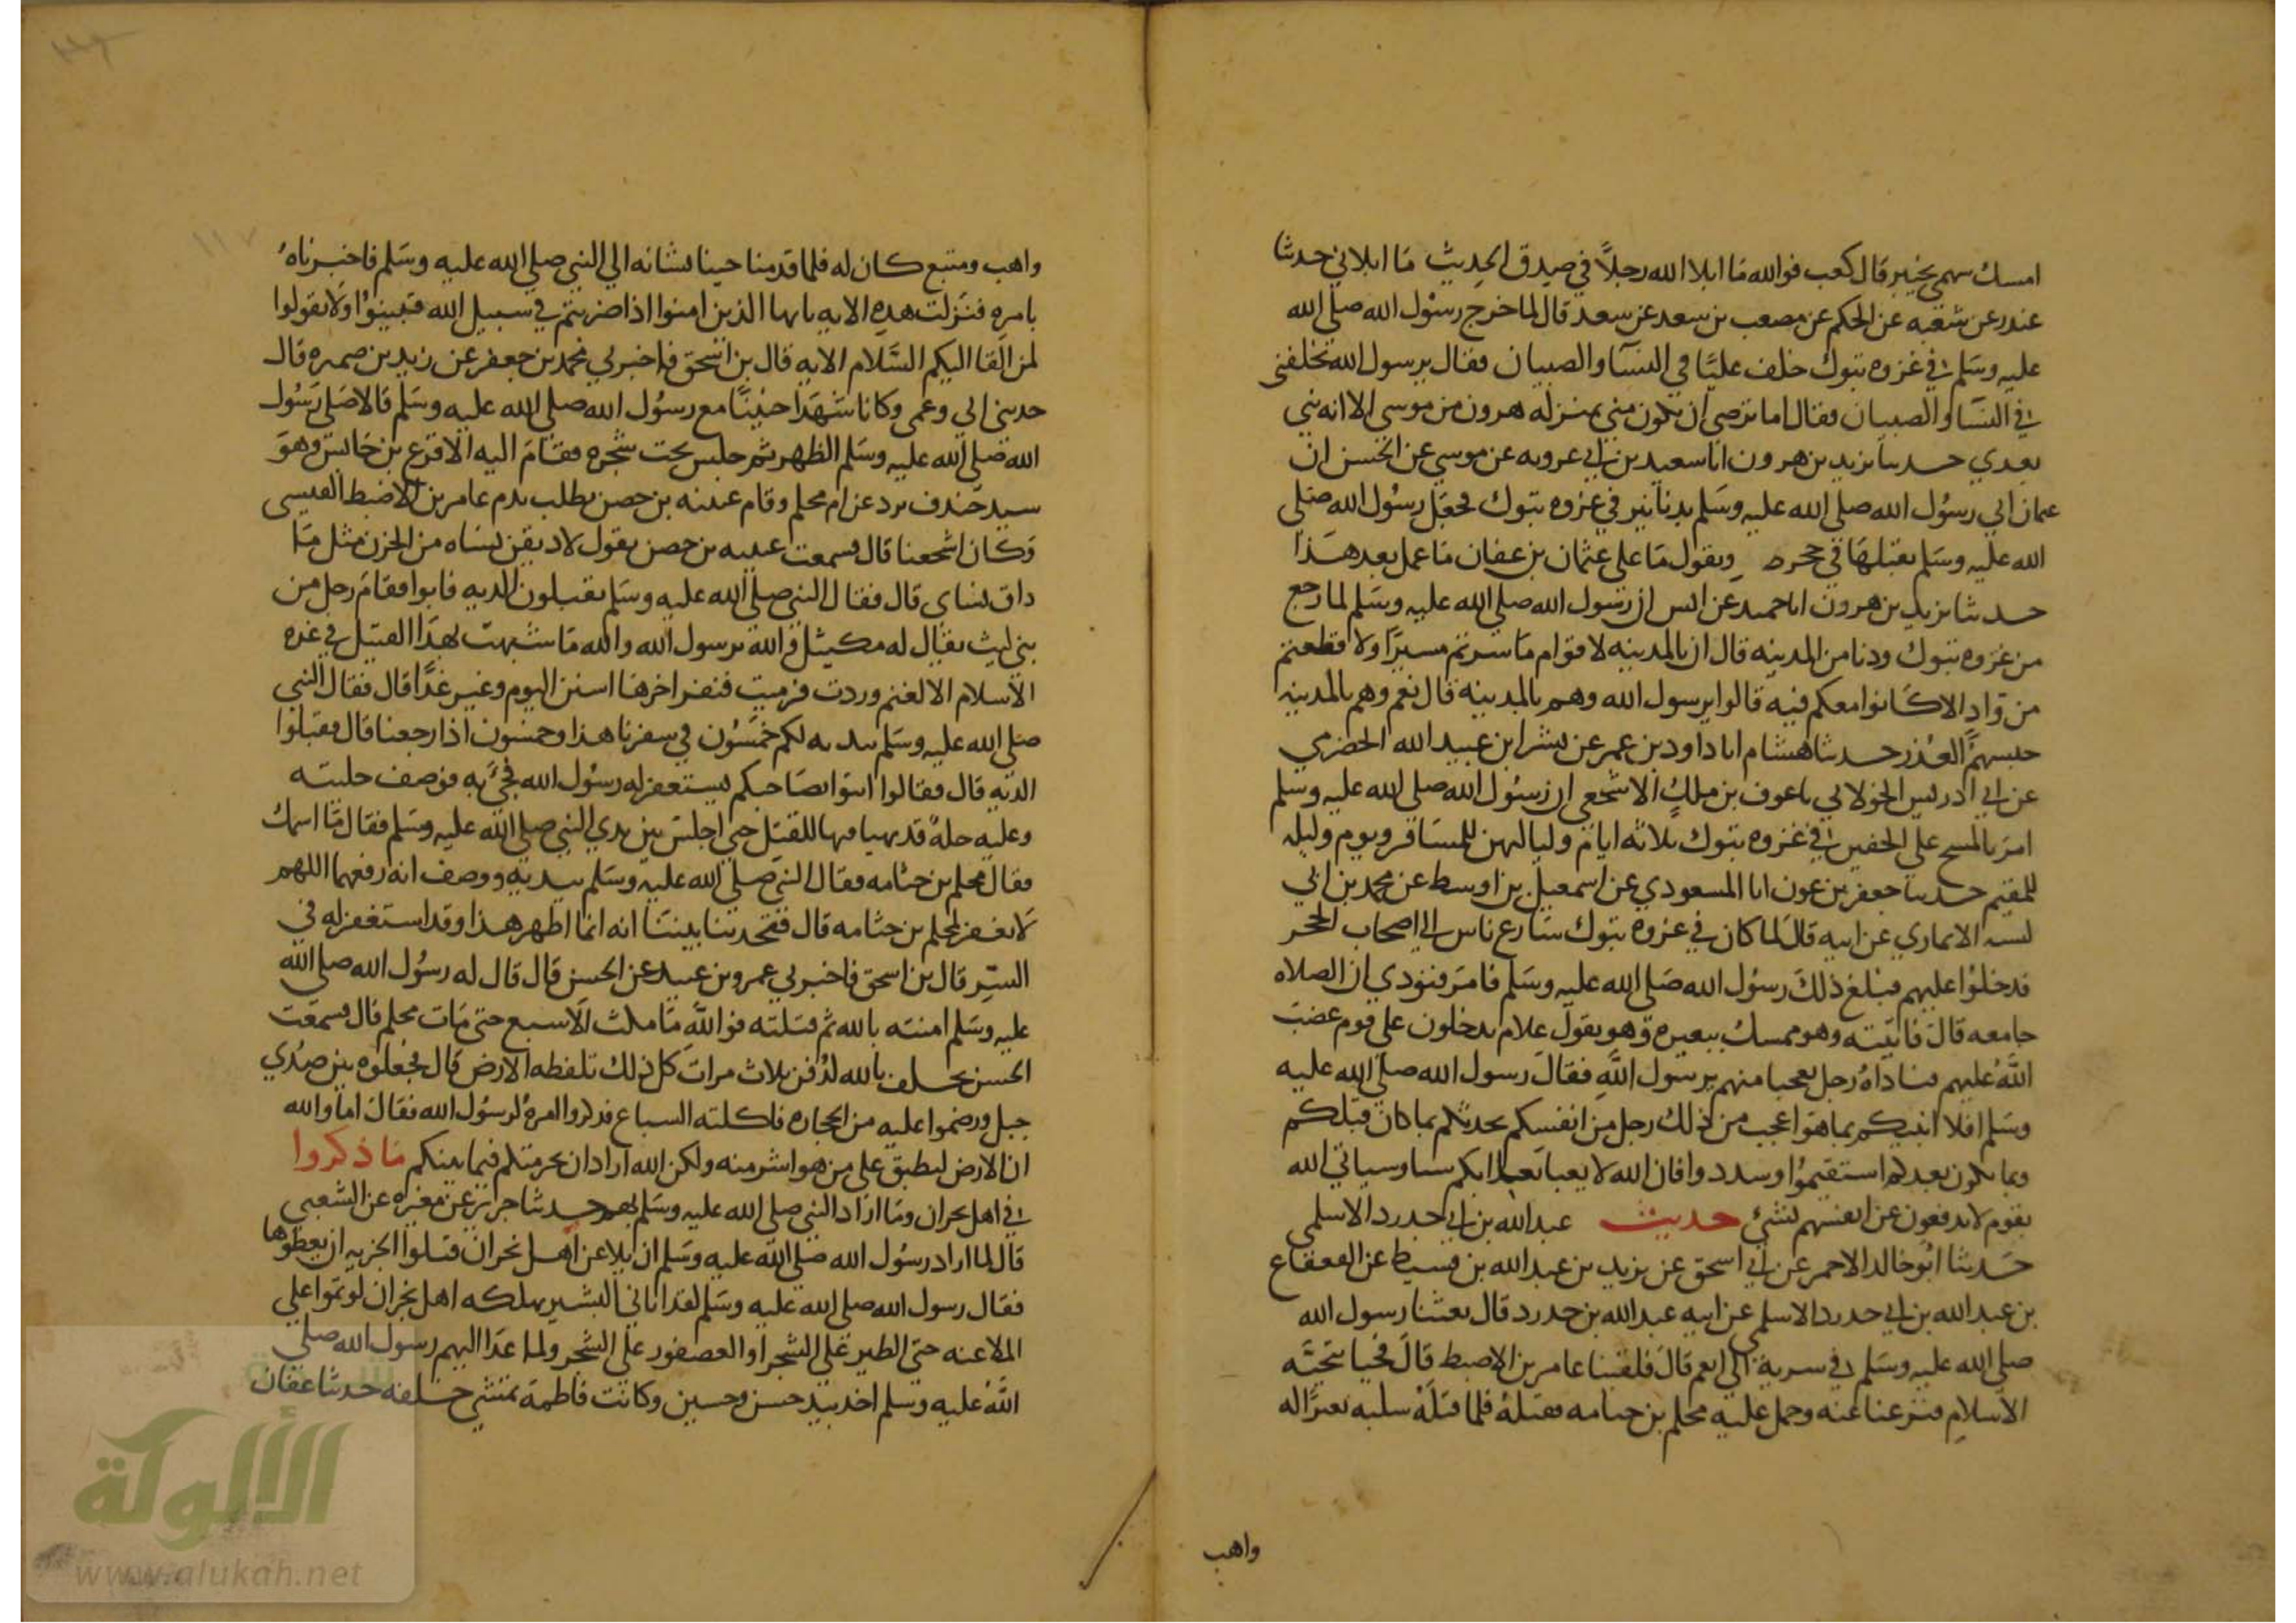 امسك سهمي بخيبر قال كعب فوالله ما ابلا الله رجلاً في صدق الحديث ما ابلاني حدثنا
غندر عن شعبه عن الحكم عن مصعب بن سعد عن سعد قال لما خرج رسول الله صلى الله
عليه وسلم في غزوه تبوك خلف عليًا في النسا والصبيان فقال يرسول الله تخلفني
في النسا والصبيان فقال اما ترضى ان تكون مني بمنزله هرون من موسى الا انه لا نبي
بعدي حدثنا يزيد بن هرون انا سعيد بن ابي عروبه عن موسي عن الحسن ان
عثمان اتي رسول الله صلى الله عليه وسلم بدنانير في غزوه تبوك فجعل رسول الله صلى
الله عليه وسلم يقبلها في حجره ويقول ما على عثمان بن عفان ما عمل بعد هذا
حدثنا يزيد بن هرون انا حميد عن انس ان رسول الله صلى الله عليه وسلم لما رجع
من غزوه تبوك ودنا من المدينه قال ان بالمدينه لاقوام ما سرتم مسيرًا ولا قطعتم
من واد الا كانوا معكم فيه قالوا يرسول الله وهم بالمدينة قال نعم وهم بالمدينه
حبسهم العذر حدثنا هشام انا داود بن عمر عن بشر ابن عبيد الله الحضرمي
عن ابي ادريس الخولاني نا عوف بن ملك الاشجعي ان رسول الله صلى الله عليه وسلم
امر بالمسح على الخفين في غزوه تبوك ثلاثه ايام ولياليهن للمسافر ويوم وليله
للمقيم حدثنا جعفر بن عون انا المسعودي عن اسمعيل بن اوسط عن محمد بن ابي
كبشه الانماري عن ابيه قال لما كان في غزوه تبوك سارع ناس الى اصحاب الحجر
فدخلوا عليهم فبلغ ذلك رسول الله صلى الله عليه وسلم فامر فنودي ان الصلاه
جامعه قال فاتيته وهو ممسك ببعيره وهو يقول علام يدخلون على قوم غضب
الله عليهم فناداه رجل تعجبا منهم يرسول الله فقال رسول الله صلى الله عليه
وسلم افلا انبيكم بما هو اعجب من ذلك رجل من انفسكم يحدثكم بما كان قبلكم
وبما يكون بعدكم استقيموا وسددوا فان الله لا يعبا بعذابكم شيا وسياتي الله
بقوم لا يدفعون عن انفسهم بشئ حديث عبد الله بن ابي حدرد الاسلمي
حدثنا ابو خالد الاحمر عن ابي اسحق عن يزيد بن عبد الله بن قسيط عن القعقاع
بن عبد الله بن ابي حدرد الاسلمي عن ابيه عبد الله بن حدرد قال بعثنا رسول الله
صلى الله عليه وسلم في سرية الى اضم قال فلقينا عامر بن الاضبط قال فحيا بتحيه
الاسلام فنزعنا عنه وحمل عليه محلم بن جثامه فقتله فلما قتله سلبه بعيرًا له
واهب
واهب ومتيع كان له فلما قدمنا جينا بشانه الى النبي صلى الله عليه وسلم فاخبرناه
بامره فنزلت هذه الايه يايها الذين امنوا اذا ضربتم في سبيل الله فتبينوا ولا تقولوا
لمن القا اليكم السلام الايه قال بن اسحق فاخبرني محمد بن جعفر عن زيد بن ضميره قال
حدثني ابي وعمي وكانا شهدا حنينًا مع رسول الله صلى الله عليه وسلم قالا صلى رسول
الله صلى الله عليه وسلم الظهر ثم جلس تحت شجره فقام اليه الاقرع بن حابس وهو
سيد خندف يرد عن ام محلم وقام عيينه بن حصن يطلب بدم عامر بن الاضبط القيسي
وكان اشجعنا قال فسمعت عيينه بن حصن يقول لاذيقن نساه من الحزن مثل ما
ذاق نساي قال فقال النبي صلى الله عليه وسلم تقبلون الديه فابوا فقام رجل من
بني ليث يقال له مكيثل والله يرسول الله والله ما شبهت هذا القتيل في غره
الاسلام الا لغنم وردت فرميت فنفر اخرها اسنن اليوم وغير غدًا قال فقال النبي
صلى الله عليه وسلم بيديه لكم خمسون في سفرنا هذا وخمسون اذا رجعنا قال فقبلوا
الديه قال فقالوا ايتوا بصاحبكم يستغفر له رسول الله فجئ به فوصف حليته
وعليه حلة قد تهيا فيها للقتل حتى اجلس بين يدي النبي صلى الله عليه وسلم فقال ما اسمك
فقال محلم بن جثامه فقال النبي صلى الله عليه وسلم بيديه ووصف انه رفعهما اللهم
لا تغفر لمحلم بن جثامه قال فتحدثنا بيننا انه انما اظهر هذا وقد استغفر له في
السر قال بن اسحق فاخبرني عمرو بن عبيد عن الحسن قال قال له رسول الله صلى الله
عليه وسلم امنته بالله ثم قتلته فوالله ما مكث الا سبع حتى مات محلم قال فسمعت
الحسن يحلف بالله لدفن ثلاث مرات كل ذلك تلفظه الارض قال فجعلوه بين صدي
جبل ورضموا عليه من الحجاره فاكلته السباع فذكروا امره لرسول الله فقال اما والله
ان الارض لتطبق على من هو اشر منه ولكن الله اراد ان يحرمتكم فيما بينكم ما ذكروا
في اهل نجران وما اراد النبي صلى الله عليه وسلم بهم حدثنا جرير عن مغيره عن الشعبي
قال لما اراد رسول الله صلى الله عليه وسلم ان يلاعن اهل نجران قبلوا الجزيه ان يعطوها
فقال رسول الله صلى الله عليه وسلم لقد اتاني البشير بهلكه اهل نجران لو تموا على
الملاعنه حتى الطير على الشجر او العصفور على الشجر ولما غدا اليهم رسول الله صلى
الله عليه وسلم اخذ بيد حسن وحسين وكانت فاطمة تمشي خلفه حدثنا عفان
١١٧
الألوكة
www.alukah.net